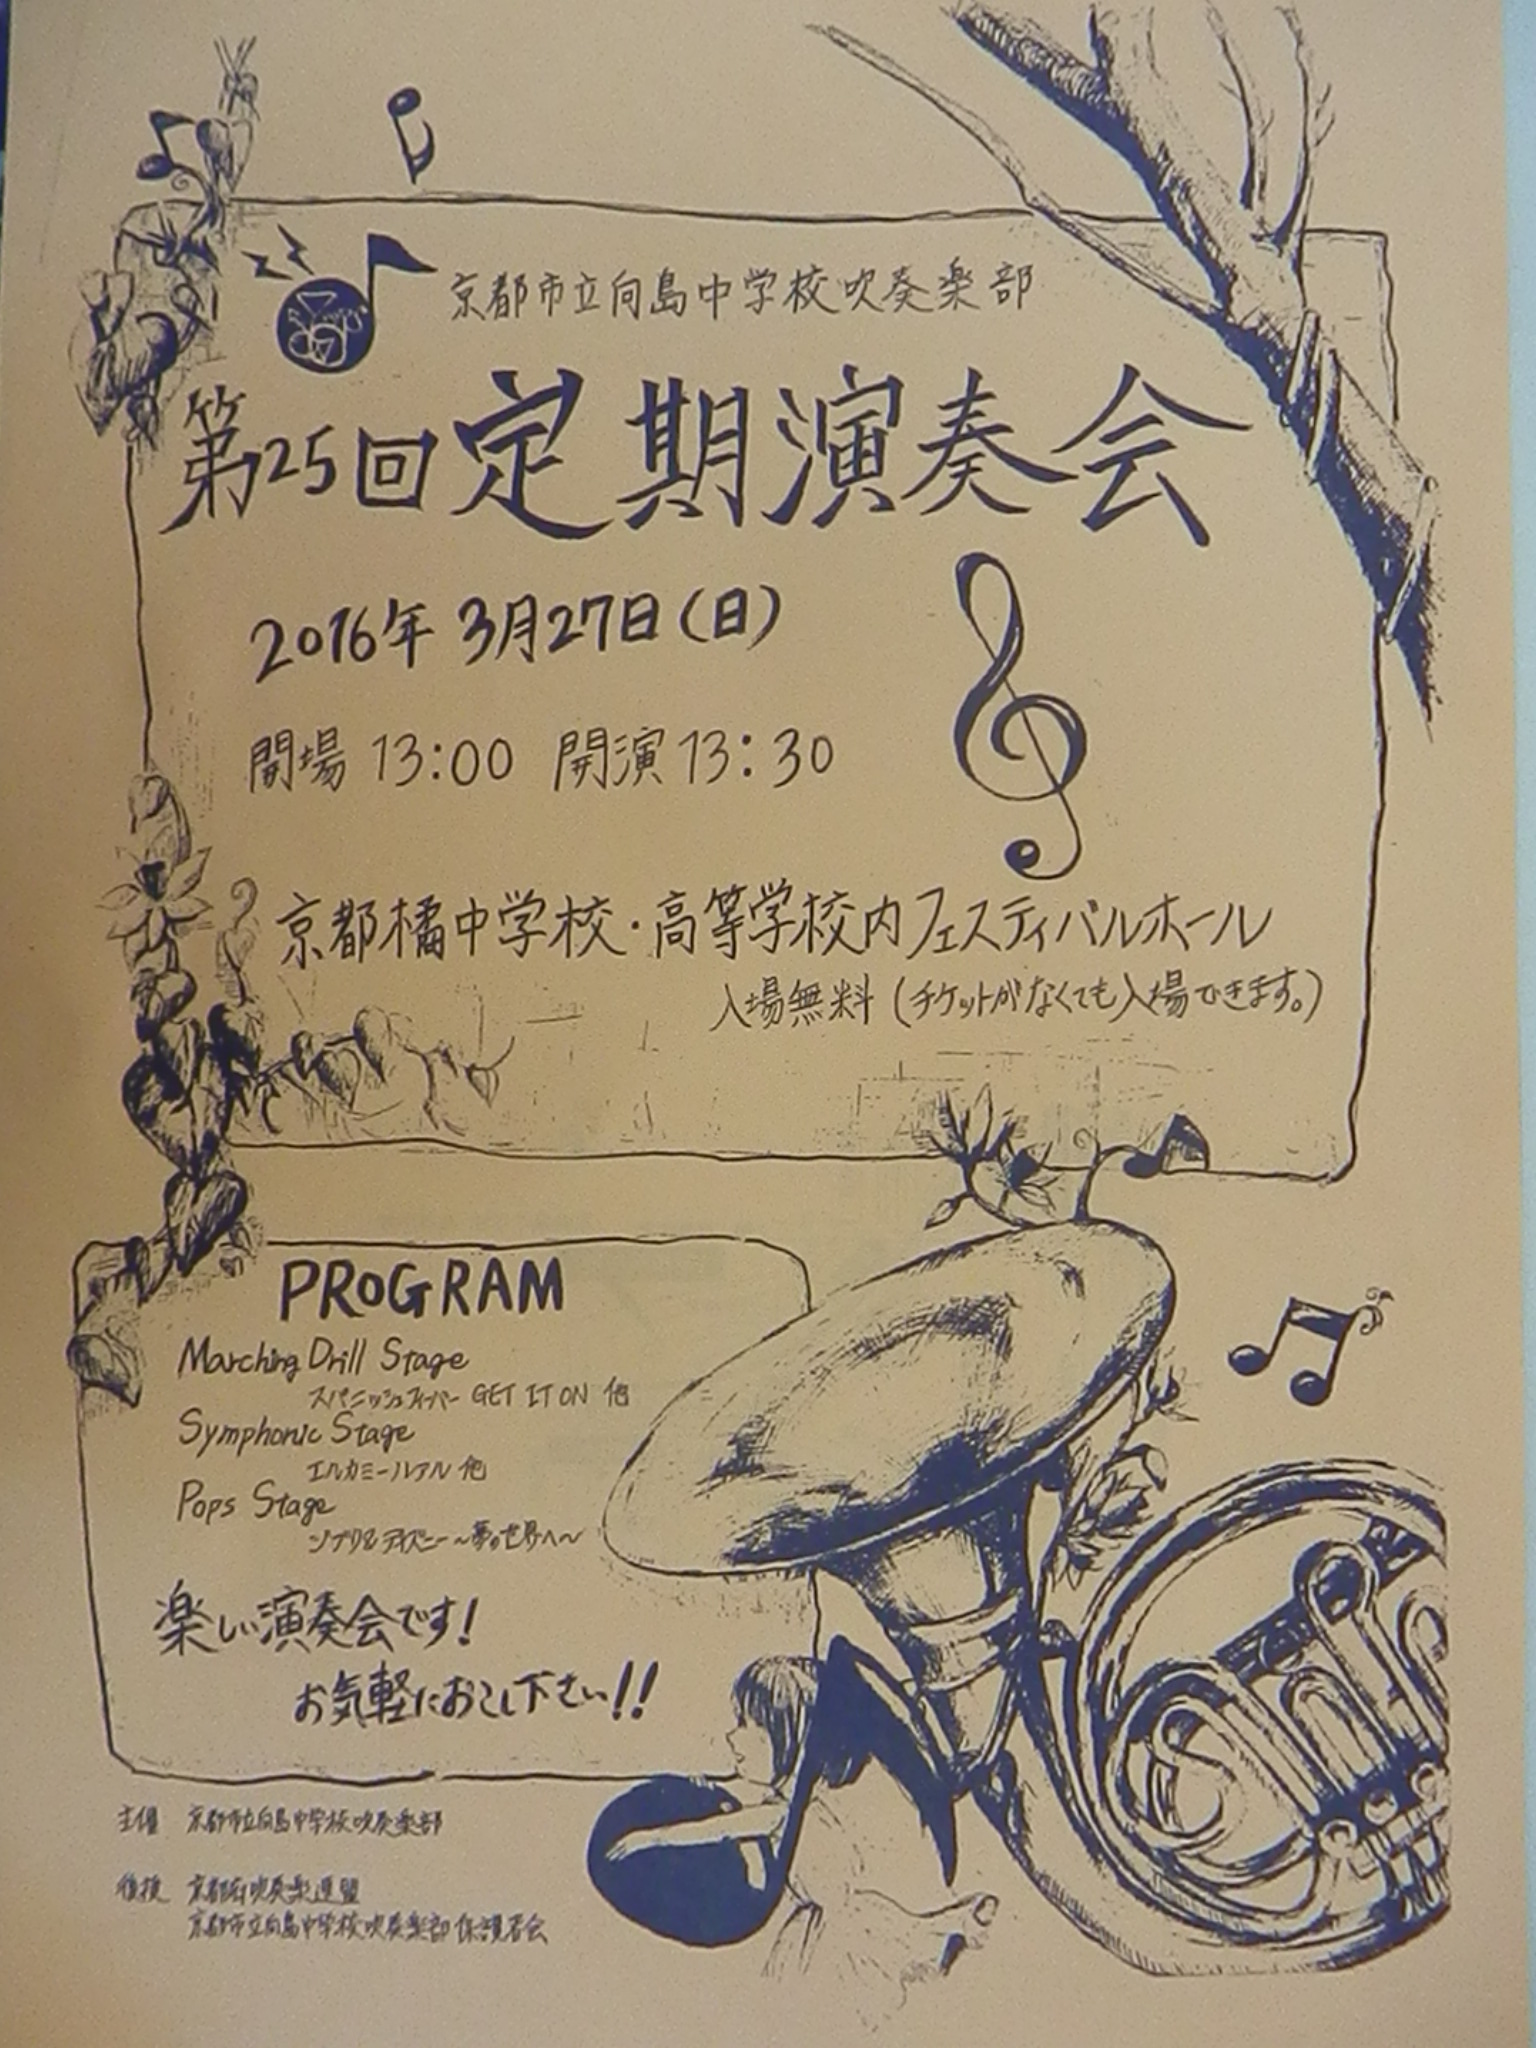 京都市立向島中学校吹奏楽部
第25回定期演奏会
2016年 3月27日(日)
開場 13:00 開演 13:30
京都橘中学校・高等学校内フェスティバルホール
入場無料(チケットがなくても入場できます。)
PROGRAM
Marching Drill Stage
スパニッシュフィーバー GET IT ON 他
Symphonic Stage
エルカミーノレアル 他
Pops Stage
ジブリ&ディズニー〜夢の世界へ〜
楽しい演奏会です!
お気軽におこし下さい!!
主催 京都市立向島中学校吹奏楽部
後援 京都府吹奏楽連盟
京都市立向島中学校吹奏楽部保護者会